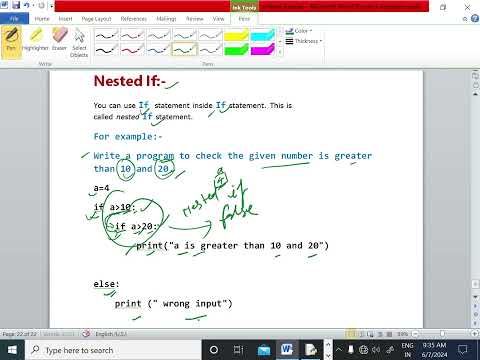 Ink Tools
File
Home
Insert
Page Layout
References
Mailings
Review
View
Pens
Pen
Highlighter
Eraser
Select
Objects
Color
Thickness
Write
Pens
Nested If:-
You can use If statement inside If statement. This is
called nested If statement.
For example:-
Write a program to check the given number is greater
than 10 and 20.
a=4
if a>10:
if a>20:
print("a is greater than 10 and 20")
else:
print (" wrong input")
Nested if
false
Page: 22 of 22
English (U.S.)
99%
Type here to search
ENG
IN
9:35 AM
6/7/2024